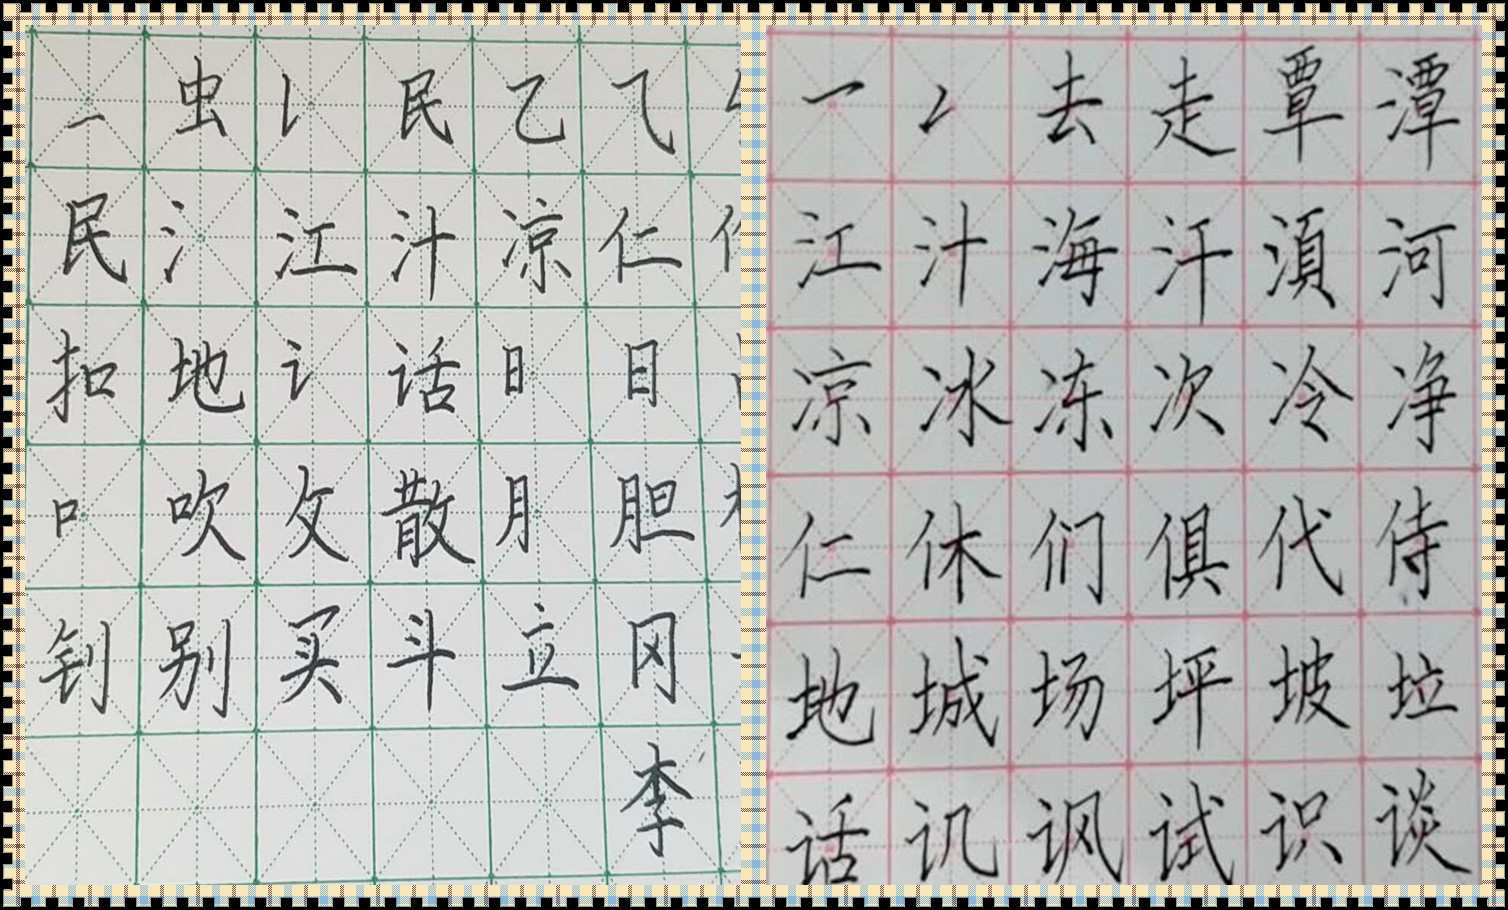 虫 民 乙 ⺄
民 氵 江 汁 凉 仁
扣 地 讠 话 日 目
口 吹 攵 散 月 胆
钊 别 买 斗 立 冈
李
一 去 走 覃 潭
江 汁 海 汗 湏 河
凉 冰 冻 次 冷 净
仁 休 们 俱 代 侍
地 城 场 坪 坡 垃
话 讥 讽 试 识 谈